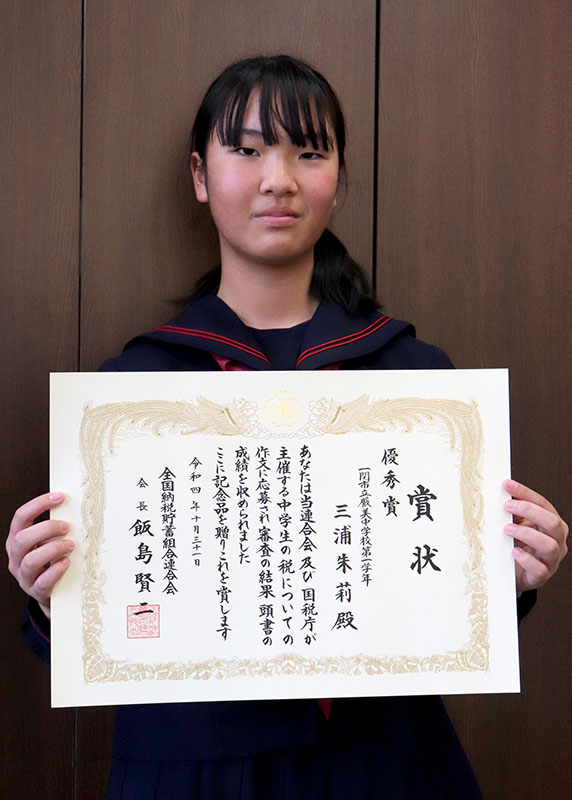 賞状
優秀賞
一関市立厳美中学校第一学年
三浦朱莉殿
あなたは当連合会及び国税庁が
主催する中学生の税についての
作文に応募され審査の結果頭書の
成績を収められました
ここに記念品を贈りこれを賞します
令和四年十月三十一日
全国納税貯蓄組合連合会
会長 飯島賢二